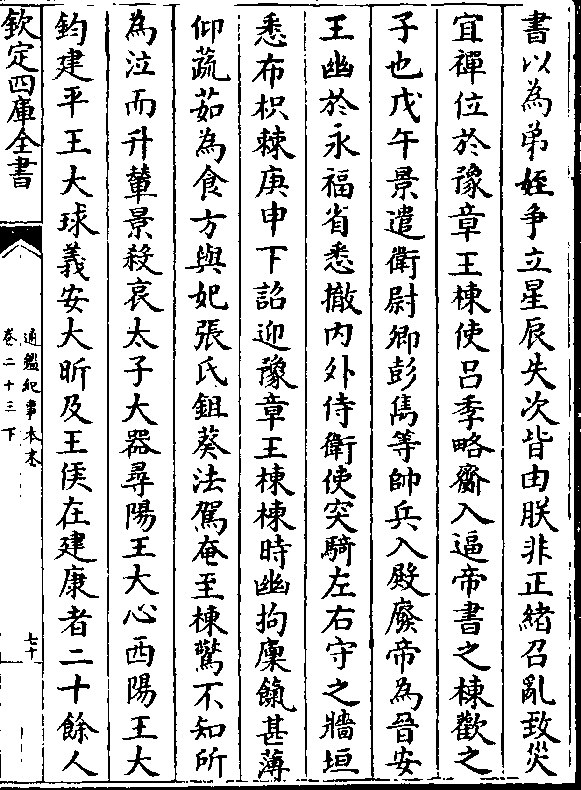 書以為弟姪争立星辰失次皆由朕非正緒召亂致災
宜禪位於豫章王棟使吕季略齎入逼帝書之棟歡之
子也戊午景遣衛尉卿彭雋等帥兵入殿廢帝為晉安
王幽於永福省悉撤内外侍衛使突騎左右守之牆垣
悉布枳棘庚申下詔迎豫章王棟棟時幽拘廩餼甚薄
仰蔬茹為食方與妃張氏鉏葵法駕奄至棟驚不知所
為泣而升輦景殺哀太子大器尋陽王大心西陽王大
鈞建平王大球義安大昕及王侯在建康者二十餘人
欽定四庫全書
通鑑紀事本末
卷二十三下
七十